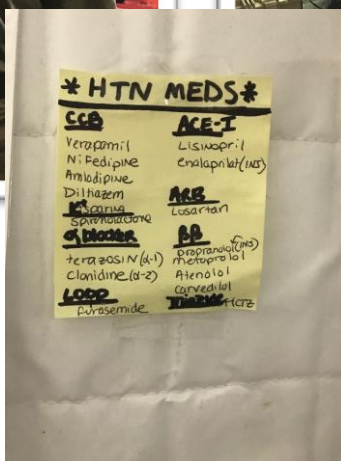 * HTN MEDS *
CCB
Verapamil
Nifedipine
Amlodipine
Diltiazem
K+ sparing
Spironolactone
α blocker
terazosin (α-1)
Clonidine (α-2)
LOOP
furosemide
ACE-I
Lisinopril
enalaprilat (INS)
ARB
Losartan
BB
propranolol (INS)
metoprolol
Atenolol
carvedilol
HCTZ